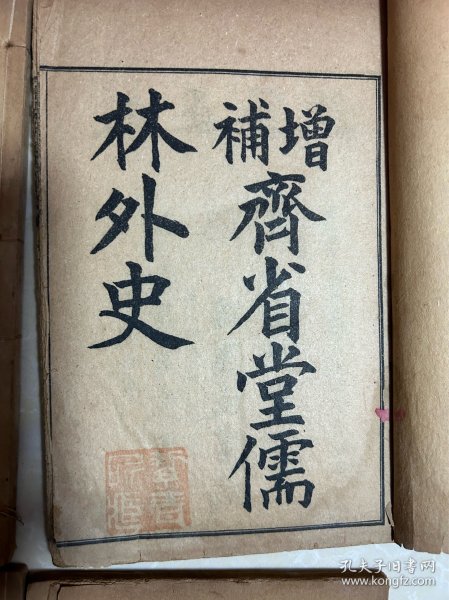 增補齊省堂儒
林外史
孔夫子旧书网
www.kongfz.com